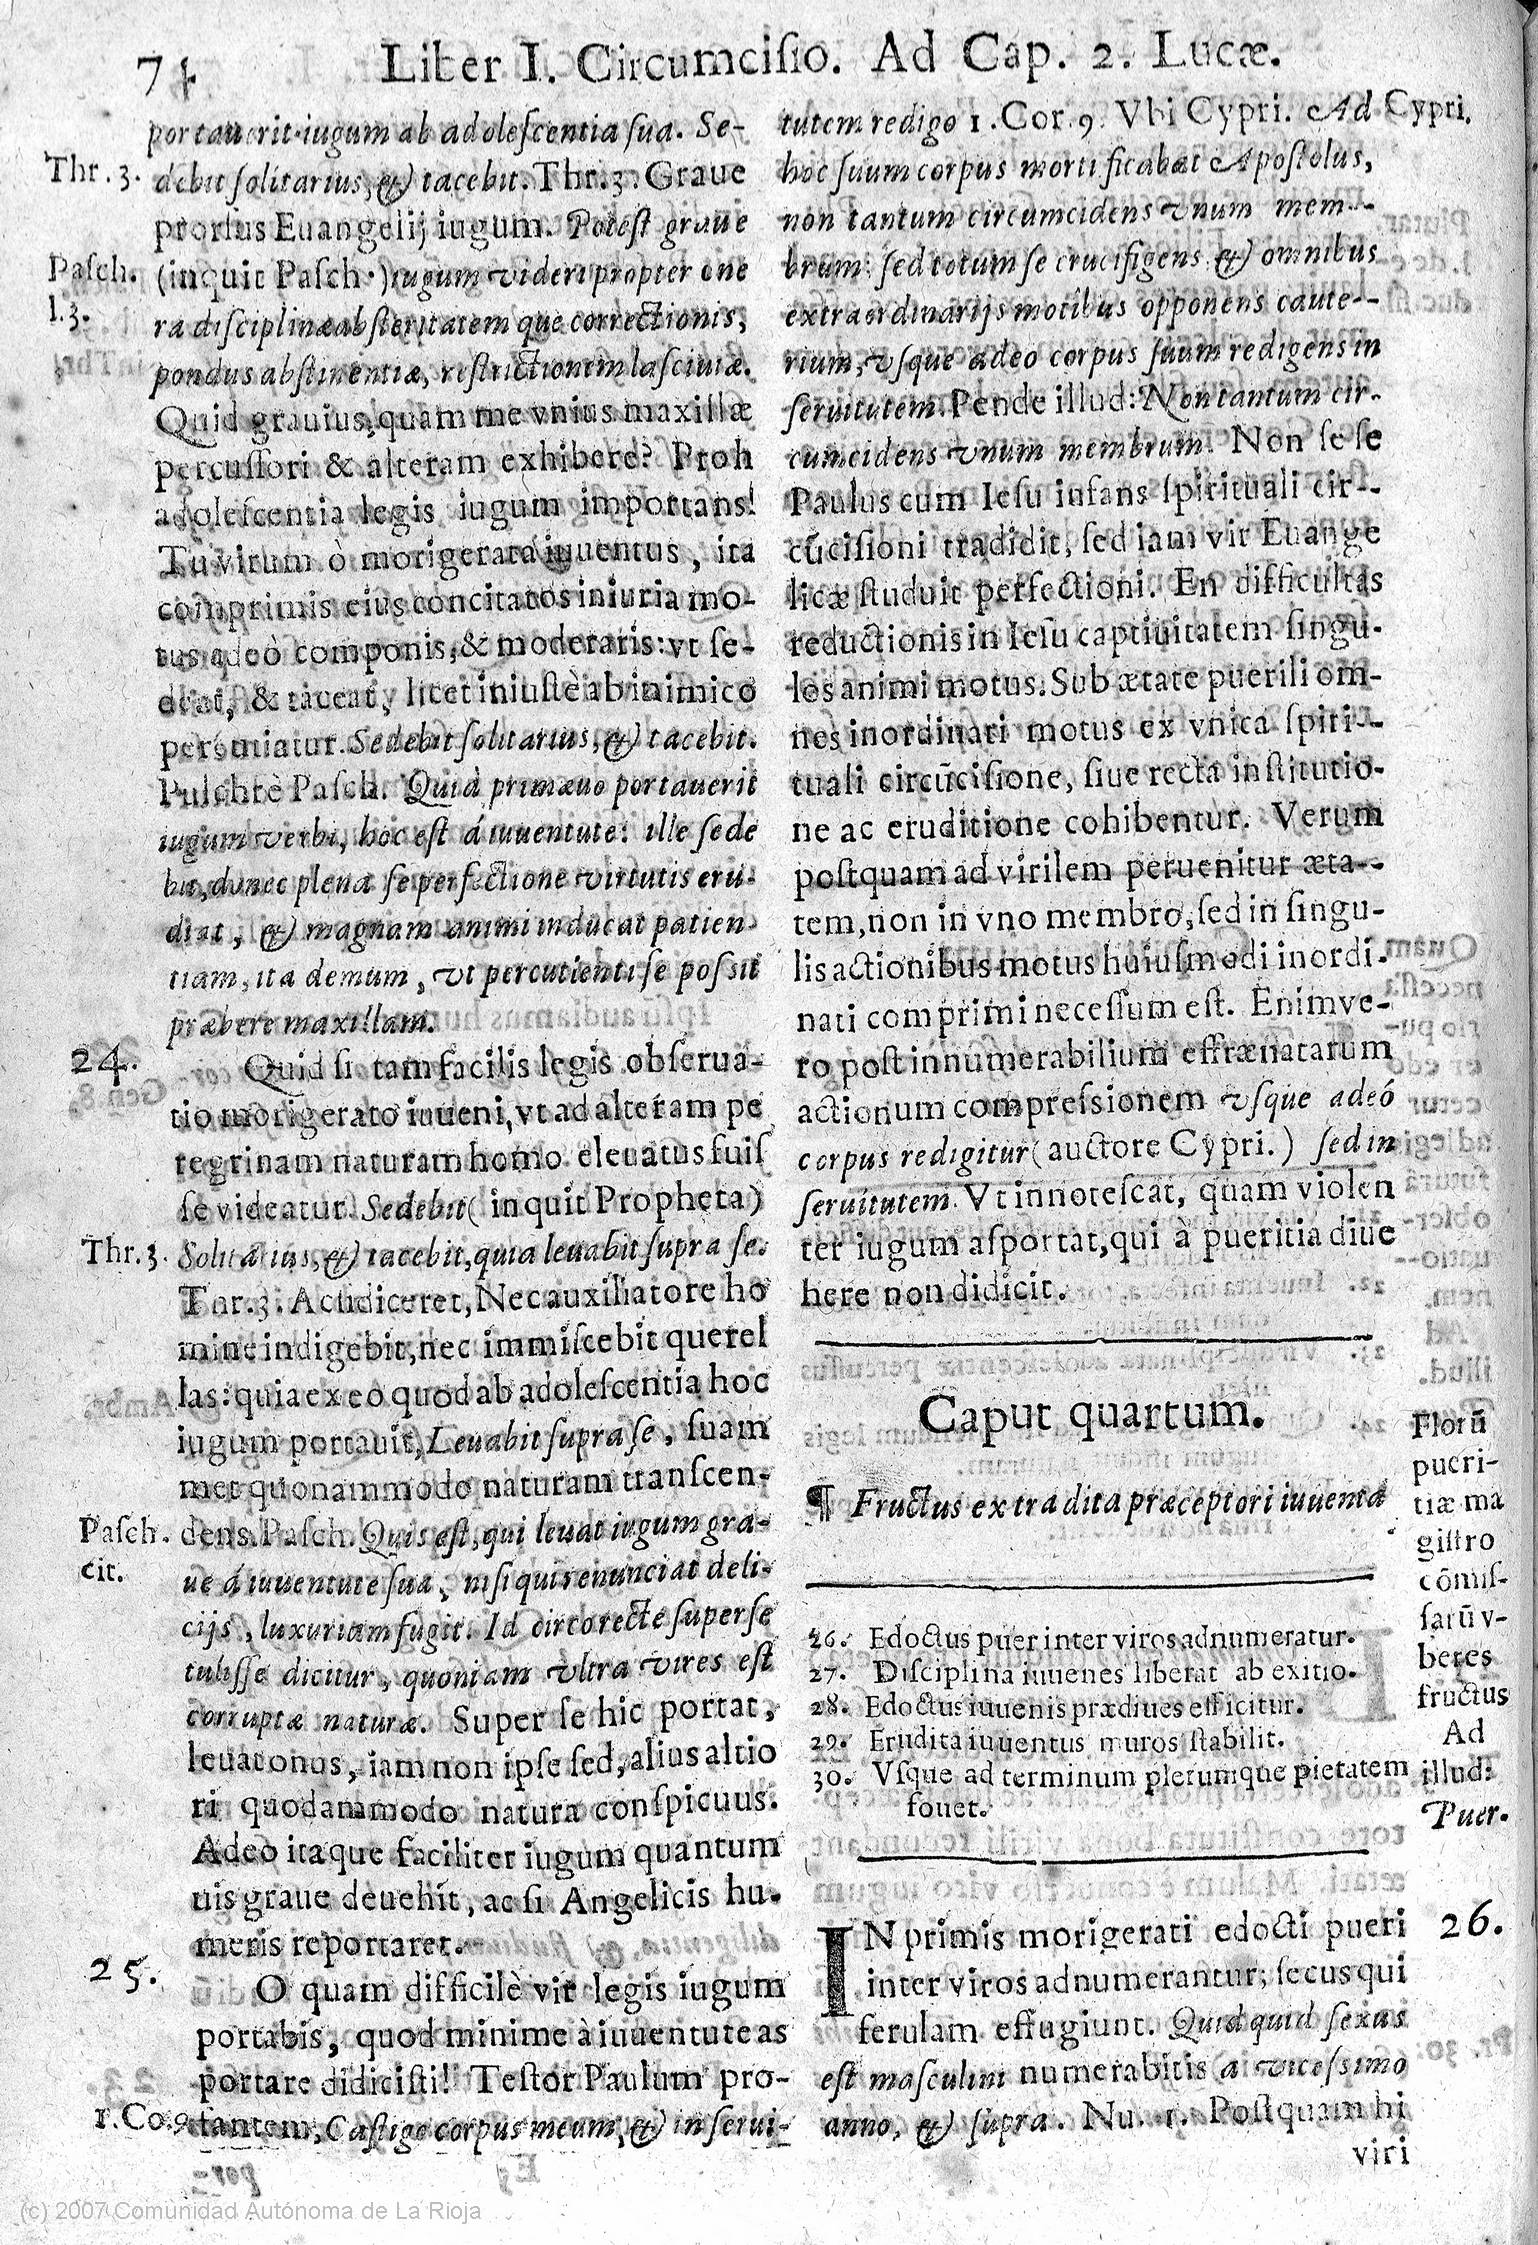 74 Liber I. Circumcisio. Ad Cap. 2. Lucæ.
portauerit iugum ab adolescentia sua. Se-
Thr. 3. debit solitarius, & tacebit. Thr. 3. Graue
prorsus Euangelij iugum. Potest graue
Pasch. (inquit Pasch.) iugum videri propter one
l. 3. ra disciplinæ absteritatem que correctionis,
pondus abstinentiæ, restrictionem lasciuiæ.
Quid grauius, quam me vnius maxillæ
percussori & alteram exhibere? Proh
adolescentia legis iugum importans!
Tu virum ò morigerata iuuentus, ita
comprimis eius concitatos iniuria mo-
tus adeò componis, & moderaris: vt se-
deat, & taceat, licet iniustè ab inimico
percutiatur. Sedebit solitarius, & tacebit.
Pulchrè Pasch. Quià primæuo portauerit
iugum verbi, hoc est á iuuentute: ille sede
bit, donec plena se perfectione virtutis eru-
diat, & magnam animi inducat patien-
tiam, ita demum, vt percutienti se possit
præbere maxillam.
24. Quid si tam facilis legis obserua-
tio morigerato iuueni, vt ad alteram pe
regrinam naturam homo eleuatus fuis
se videatur. Sedebit (inquit Propheta)
Thr. 3. Solitarius, & tacebit, quia leuabit supra se.
Thr. 3. Ac si diceret, Nec auxiliatore ho
mine indigebit, nec immiscebit querel
las: quia ex eo quod ab adolescentia hoc
iugum portauit, Leuabit supra se, suam
met quonammodo naturam transcen-
Pasch. dens. Pasch. Quis est, qui leuat iugum gra-
cit. ue á iuuentute sua, nisi qui renunciat deli-
cijs, luxuriam fugit. Id circo recte super se
tulisse dicitur, quoniam vltra vires est
corruptæ naturæ. Super se hic portat,
leuat onus, iam non ipse sed, alius altio
ri quodammodo natura conspicuus.
Adeo itaque faciliter iugum quantum
uis graue deuehit, ac si Angelicis hu-
meris reportaret.
25. O quam difficilè vir legis iugum
portabis, quod minime à iuuentute as
portare didicisti! Testor Paulum pro-
1. Co. 9. fantem, Castigo corpus meum, & in serui-
tutem redigo 1. Cor. 9. Vbi Cypri. Ad Cypri.
hoc suum corpus mortificabat Apostolus,
non tantum circumcidens vnum mem--
brum: sed totum se crucifigens & omnibus
extraordinarijs motibus opponens caute--
rium, vsque adeo corpus suum redigens in
seruitutem. Pende illud: Non tantum cir-
cumcidens vnum membrum. Non se se
Paulus cum Iesu infans spirituali cir--
cũcisioni tradidit, sed iam vir Euange
licæ studuit perfectioni. En difficultas
reductionis in Iesu captiuitatem singu-
los animi motus. Sub ætate puerili om-
nes inordinati motus ex vnica spiri--
tuali circũcisione, siue recta institutio-
ne ac eruditione cohibentur. Verum
postquam ad virilem peruenitur æta--
tem, non in vno membro, sed in singu-
lis actionibus motus huiusmodi inordi-
nati comprimi necessum est. Enimve-
ro post innumerabilium effrænatarum
actionum compressionem vsque adeó
corpus redigitur (auctore Cypri.) sed in
seruitutem. Vt innotescat, quam violen
ter iugum asportat, qui à pueritia diue
here non didicit.
Caput quartum.
¶ Fructus ex tradita præceptori iuuenta
Florũ
pueri-
tiæ ma
gistro
cõmis-
sarũ v-
beres
fructus
26. Edoctus puer inter viros adnumeratur.
27. Disciplina iuuenes liberat ab exitio.
28. Edoctus iuuenis prædiues efficitur.
29. Erudita iuuentus muros stabilit.
30. Vsque ad terminum plerumque pietatem
fouet.
Ad
illud:
Puer.
IN primis morigerati edocti pueri 26.
inter viros adnumerantur; secus qui
ferulam effugiunt. Quidquid sexus
est masculini numerabitis a vicessimo
anno, & supra. Nu. 1. Postquam hi
viri
(c) 2007 Comunidad Autónoma de La Rioja